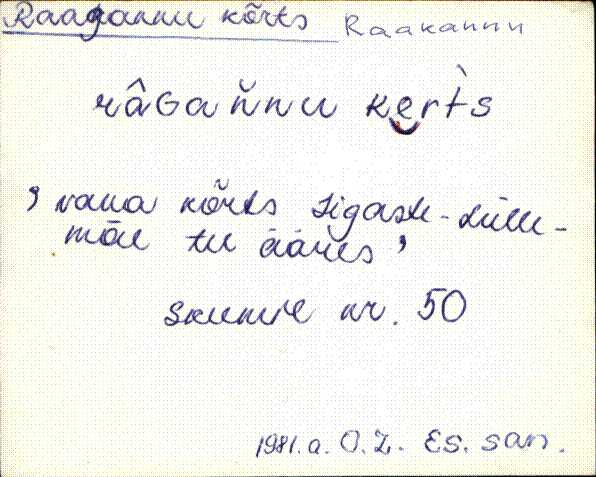 Raagannu kõrts Raakannu
râGaňnu kert̀s
, vana kõrts Sigaste-Lülle-
mäe tee ääres ,
Skeemil nr. 50
1981.a. O.Z. Es. san.